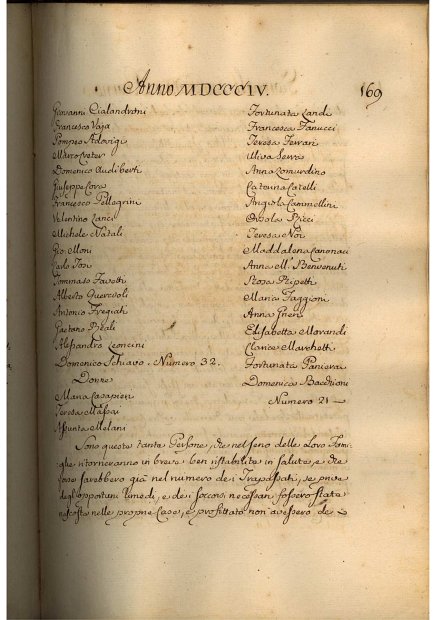 Anno MDCCCIV.
169
Giovanni Cialandroni
Francesco Vaja
Pompeo
Mauro
Domenico Audibert
Giuseppe Cova
Francesco Pellegrini
Valentino Lanci
Michele Natali
Gio: Moni
Carlo Tosi
Tommaso
Alberto Guercioli
Antonio Fregiah
Gaetano
Alessandro Leoncini
Domenico Schiavo. Numero 32.
Donne
Maria Casapieri
Teresa Massai
Assunta Melani
Fortunata Landi
Francesca Fanucci
Teresa Ferrari
Uliva Serra
Anna Lomurdino
Caterina Catelli
Angiola Cammellini
Orsola Ricci
Teresa Noi
Maddalena Canonaci
Anna M.a Benvenuti
Rosa
Maria Faggioni
Anna
Elisabetta Morandi
Clarice Marchetti
Fortunata Paniera
Domenica
Numero 21 —
Sono queste tante Persone, che nel seno delle Loro Fami-
glie ritorneranno in breve ben ristabilite in salute, e che
forse sarebbero già nel numero dei Trapassati, se prive
degl'opportuni rimedi, e dei soccorsi necessari fossero state
nascoste nelle proprie Case, e profittato non avessero de —